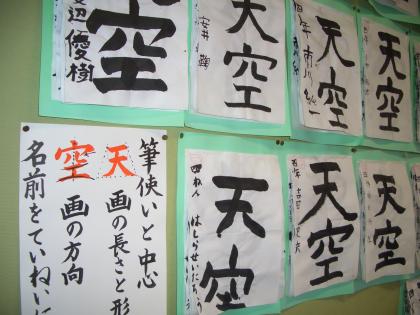 空
辺優樹
天空
安井
天空
四年 市川
天空
筆使いと中心
天 画の長さと形
空 画の方向
名前をていねいに
天空
天空
四年 吉田
天空